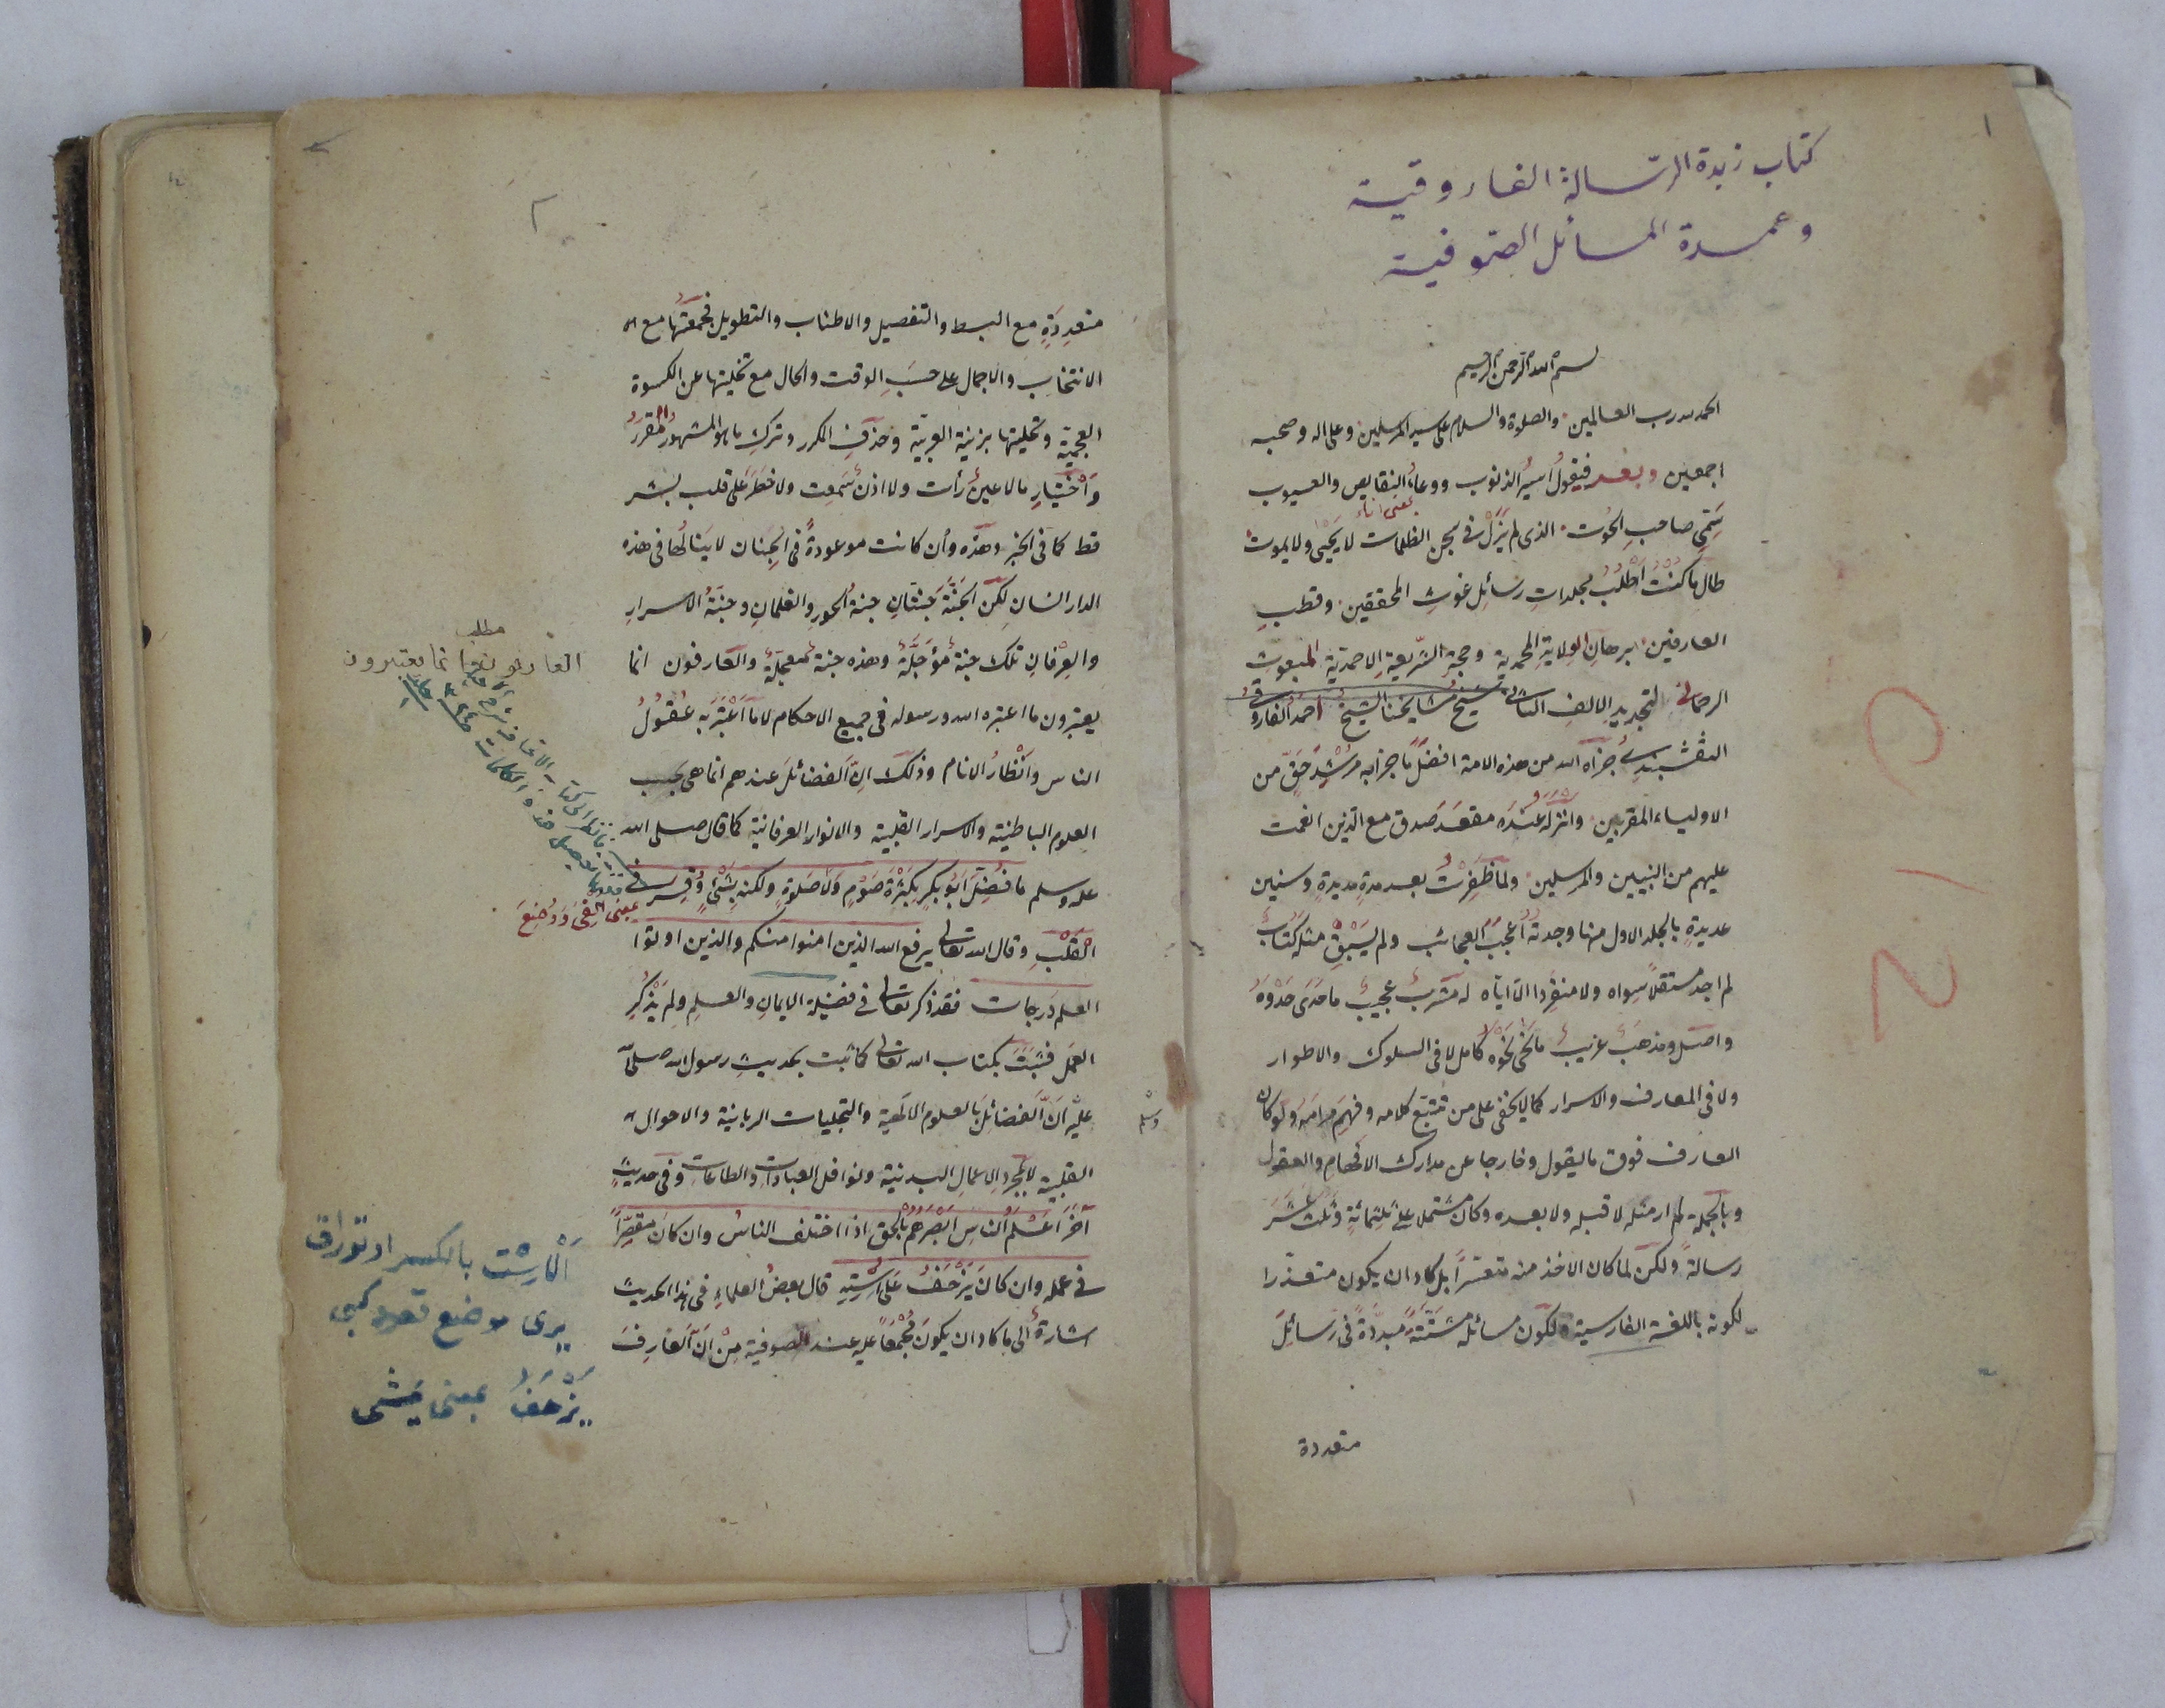 ١
كتاب زبدة الرّسالة الفاروقية
وعمدة المسائل الصّوفية
بسم الله الرحمن الرحيم
الحمد لله رب العالمين والصلوة والسلام على سيد المرسلين وعلى اله وصحبه
اجمعين وبعد فيقول اسير الذنوب ووعاء النقايص والعيوب
بمعنى اناء
سَمّي صاحبِ الحوت الذى لم يزل في سجن الظلمات لا يَحيٰى ولا يموت
طال ما كنْتُ اَطْلُبُ مجلداتِ رسَائِل غوثِ المحققين وقطبِ
العارفين برهانِ الولايةِ المحمدية وحجةِ الشّريعةِ الاحمديّة المبعوثِ
الرحمانى لتجديد الالف الثانى شيخ مشايخنا الشيخ احمد الفاروقى
النقشبندى جزاه الله من هذه الامة افضلَ ما جزا به مرشدَ حقٍّ من
الاولياء المقربين وانزله عنده مقعدَ صدق مع الذين انعمت
عليهم من النبيين والمرسلين ولما ظفِرْتُ بعد مدةٍ مديدةٍ وسنين
عديدةٍ بالجلد الاول منها وجدته اَعْجَبَ العجائب ولم يَسْبِقْ مثله كتابٌ
لم اجد مستقلاً سِواه ولا منفِردا الا اياه له مشربٌ عجيبٌ ما حَدَى حَدْوَهُ
واصل ومذهبٌ غريبٌ ما نَحٰى نَحْوَه كامل لا فى السلوك والاطوار
ولا فى المعارف والاسرار كما لا يخفى على من تتبّع كلامه وفهِمَ مرامَه ولوكان
العارف فوق ما يقول وخارجا عن مدارك الافهامِ والعقول
وبالجملة لم ار مثله لا قبله ولا بعده وكان مشتملا على ثلثمائةٍ وثلث عَشَرَ
رسالةً ولكن لما كان الاخذ منه متعسّراً بل كاد ان يكون متعذّرا
لكونه باللغة الفارسية ولكون مسائله مشتتةً مبدّدةً فى رسَائِلَ
متعددة
٢
متعدِدَةٍ مع البسط والتفصيل والاطناب والتطويل فجمعتُها مع
الانتخاب والاجمال على حسَبِ الوقت والحال مع تخليتها عن الكسوة
العجميّة وتحليتها بزينة العربية وحذفِ المكرر وتركِ ما هو المشهورُ المقررُ
وَاخْتِيَارِ ما لا عينٌ رأت ولا اذن سَمِعت ولا خطَرَ على قلب بشر
قط كما فى الخبر وهذه وأن كانت موعودةً فى الجِنان لا يَنَالُها فى هذه
الدار انسان لكن الجَنَّة جنتانِ جنةُ الحورِ والغلمانِ وجنةُ الاسرارِ
والعِرْفانِ تلك جنةٌ مؤجَلَّةٌ وهذه جنة معجلَةٌ والعارفون انما
مطلب
العارفون انما يعتبرون
يعتبرون ما اعتبره الله ورسوله فى جميع الاحكام لا ما اعْتَبَرَ به عُقولُ
الناس وانْظارُ الانام وذلك انّ الفضائلَ عندهم انما هى بحسب
العلوم الباطنية والاسرار القلبية والانوار العرفانية كما قال صلى الله
عليه وسلم ما فُضِّلَ اَبُو بكرٍ بكثرة صَوْمٍ ولا صلوةٍ ولكن بِشْئٍ وُقِرَ فى
وَوُضِعَ
القَلْبِ وقال الله تعالى يرفع الله الذين امنوا منكم والذين اوتوا
العلم درجات فقد ذكر تعالى فى فضيلة الايمان والعلمِ ولم يَذْكُرِ
العمل فثبَتَ بكتاب الله تعالى كما ثبت بحديثِ رسول الله صلى الله
عليه انّ الفضائلَ بالعلوم الالهية والتجليات الربانية والاحوال
وسلم
القلبية لا بمجردِ الاعمال البدنية ونوافل العبادات والطاعات وفى حديثٍ
آخَرَ اَعْلَمُ الناسِ اَبْصَرُهُمْ بالحق اذا اختلف الناسُ وان كان مقصِّراً
فى عمله وان كان يَزْحَفُ على اِسْتِهِ قال بعض العلماءِ فى هذا الحديث
اشارةٌ الى ما كاد ان يكونَ مُجْمَعاً عليه عند الصوفية مِنْ انّ العَارِفَ
اَلْاِسْتُ بالكسر اوتوراق
يرى موضع قعود كبى
يَزْحَفُ بمعنى يمَشى